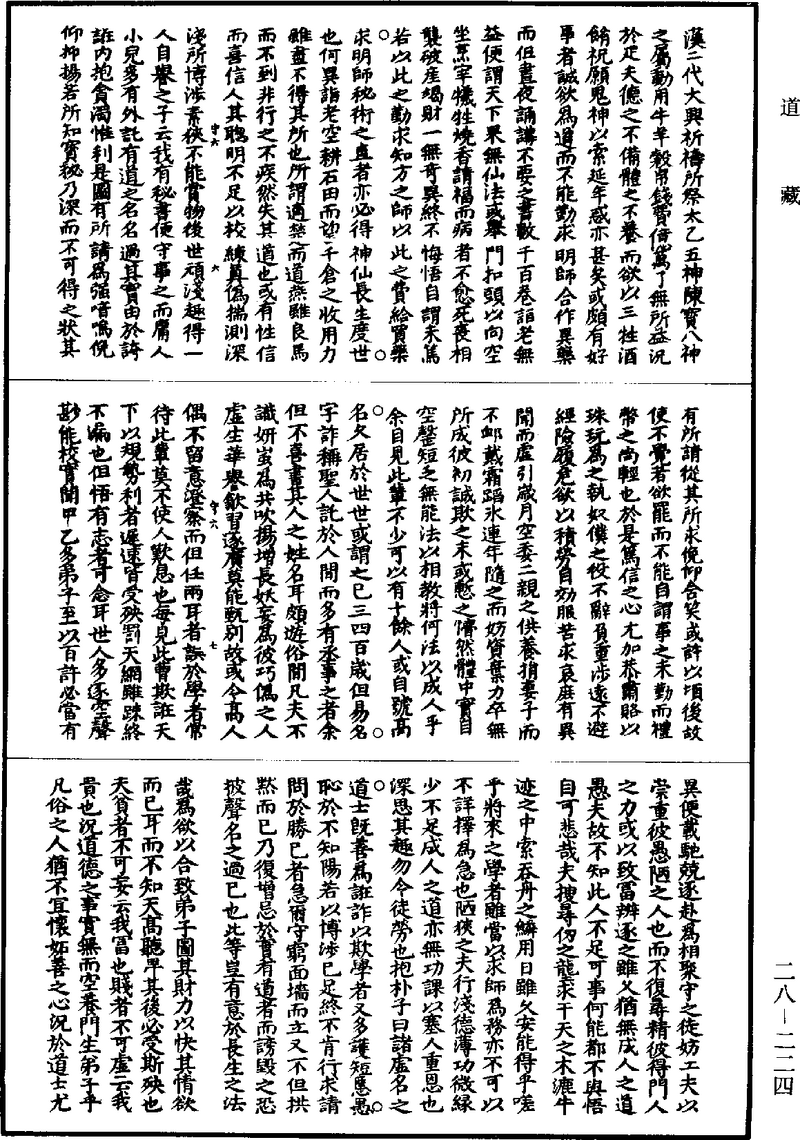 道藏
漢二代大興祈禱所祭太乙五神陳寶八神
之屬動用牛羊穀帛錢費億萬了無所益況
於疋夫德之不備體之不養而欲以三牲酒
餚祝願鬼神以索延年惑亦甚矣或頗有好
事者誠欲為道而不能勤求明師合作異藥
而但晝夜誦講不要之書數千百卷詣老無
益便謂天下果無仙法或舉門扣頭以向空
坐烹宰犧牲燒香請福而病者不愈死喪相
襲破產竭財一無奇異終不悔悟自謂未篤
若以此之勤求知方之師以此之費給買藥
求明師秘術之直者亦必得神仙長生度世
也何異詣老空耕石田而望千倉之收用力
雖盡不得其所也所謂適楚而道燕雖良馬
而不到非行之不疾然失其道也或有性信
而喜信人其聰明不足以校練真偽揣測深
守六 六
淺所博涉素狹不能賞物後世頑淺趣得一
人自譽之子云我有秘書便守事之而庸人
小兒多有外託有道之名名過其實由於誇
誑內抱貪濁惟利是圖有所請為強喑嗚俛
仰抑揚若所知寶秘乃深而不可得之狀其
有所請從其所求俛仰含笑或許以頃後故
使不覺者欲罷而不能自謂事之未勤而禮
幣之尚輕也於是篤信之心尤加恭肅賂以
珠玩為之執奴僕之役不辭負重涉遠不避
經險履危欲以積勞自効服苦求哀庶有異
聞而虛引歲月空委二親之供養捐妻子而
不卹戴霜蹈氷連年隨之而妨資棄力卒無
所成彼初誠欺之末或慙之懵然體中實自
空罄短乏無能法以相教將何法以成人乎
余目見此輩不少可以有十餘人或自號高
名久居於世世或謂之已三四百歲但易名
字詐稱聖人託於人間而多有承事之者余
但不喜書其人之姓名耳頗遊俗間凡夫不
識妍蚩為共吹揚增長妖妄為彼巧偽之人
虛生華譽歙習逐廣莫能甄別故或令高人
守六 七
偶不留意澄察而但任兩耳者誤於學者常
待此輩莫不使人歎息也每見此曹欺誑天
下以規勢利者遲速皆受殃罰天網雖踈終
不漏也但悟有志者可念耳世人多逐空聲
尠能校實聞甲乙多弟子至以百許必當有
異便載馳競逐赴為相聚守之徒妨工夫以
崇重彼愚陋之人也而不復尋精彼得門人
之力或以致富辨逐之雖久猶無成人之道
愚夫故不知此人不足可事何能都不與悟
自可悲哉夫搜尋仞之壟求干天之木漉牛
迹之中索吞舟之鱗用日雖久安能得乎嗟
乎將來之學者雖當以求師為務亦不可以
不詳擇為急也陋狹之夫行淺德薄功微緣
少不足成人之道亦無功課以塞人重恩也
深思其趣勿令徒勞也抱朴子曰諸虛名之
道士既善為誑詐以欺學者又多護短匿愚
恥於不知陽若以博涉已足終不肯行求請
問於勝己者急爾守窮面墻而立又不但拱
默而已乃復增忌於實有道者而謗毀之恐
彼聲名之過已也此等豈有意於長生之法
哉為欲以合致弟子圖其財力以快其情欲
而已耳而不知天高聽卑其後必受斯殃也
夫貧者不可妄云我富也賤者不可虛云我
貴也況道德之事實無而空養門生弟子乎
凡俗之人猶不宜懷妬善之心況於道士尤
二八—二二四